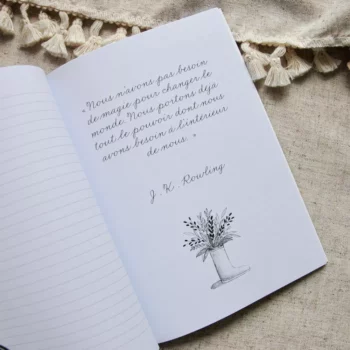 « Nous n'avons pas besoin
de magie pour changer le
monde. Nous portons déjà
tout le pouvoir dont nous
avons besoin à l'intérieur
de nous. »
J. K. Rowling